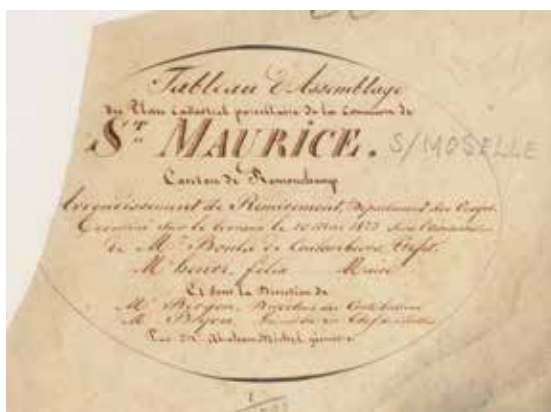 Tableau d'Assemblage
du Plan cadastral parcellaire de la Commune de
ST. MAURICE. S/MOSELLE
Canton de Ramonchamp
Arrondissement de Remiremont, Département des Vosges
Terminé sur le terrain le 10 Mai 1833 sous
de Mr. Boula de Coulombiers Préfet.
Mr henri felix Maire
Et sous la Direction de
Mr. Directeur des Contributions
Mr.
Par Mr.